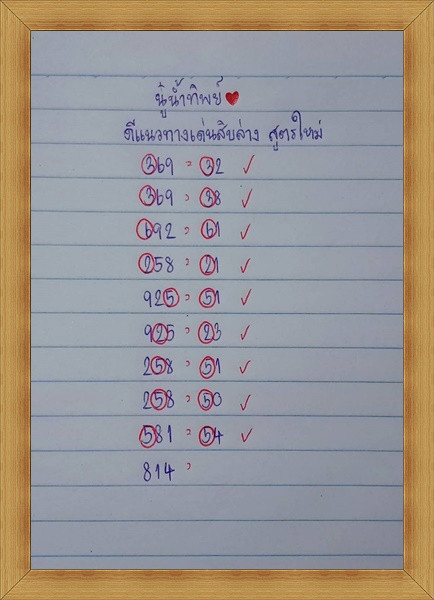 นู๋น้ำทิพย์
ตีแนวทางเด่นสิบล่าง สูตรใหม่
369 = 32 ✓
369 = 38 ✓
692 = 61 ✓
258 = 21 ✓
925 = 51 ✓
925 = 23 ✓
258 = 51 ✓
258 = 50 ✓
581 = 54 ✓
814 =